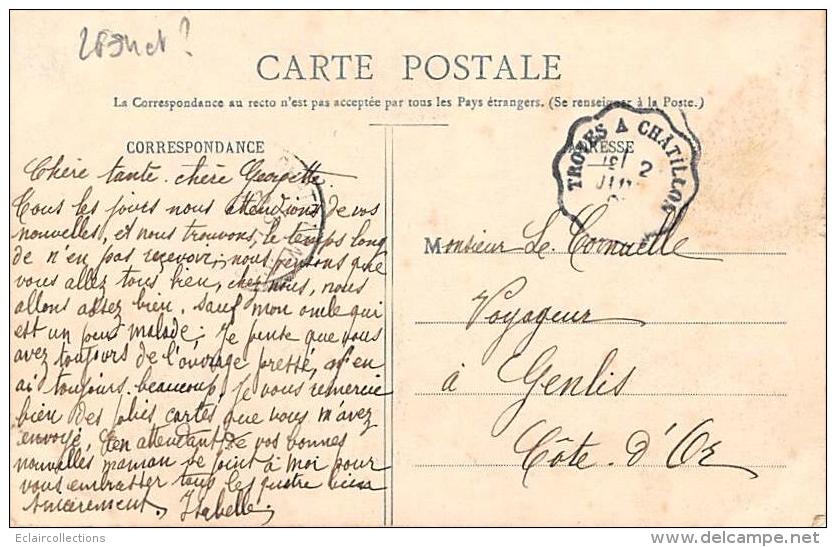 CARTE POSTALE
La Correspondance au recto n'est pas acceptée par tous les Pays étrangers. (Se renseigner à la Poste.)
CORRESPONDANCE
ADRESSE
TROYES A CHATILLON
2
Chère tante. chère Georgette.
Tous les jours nous attendions de vos
nouvelles, et nous trouvons, le temps long
de n'en pas recevoir; nous pensons que
vous allez tous bien, chez nous, nous
allons assez bien. Sauf mon oncle qui
est un peu malade; Je pense que vous
avez toujours de l'ouvrage pressé, j'en
ai toujours beaucoup. Je vous remercie
bien des jolis cartes que vous m'avez
envoyé, En attendant de vos bonnes
nouvelles maman se joint à moi pour
vous embrasser tous les quatre bien
sincèrement. Isabelle.
Monsieur Le Cornuelle
Voyageur
à Genlis
Côte. d'Or
Eclaircollections
delcampe.net